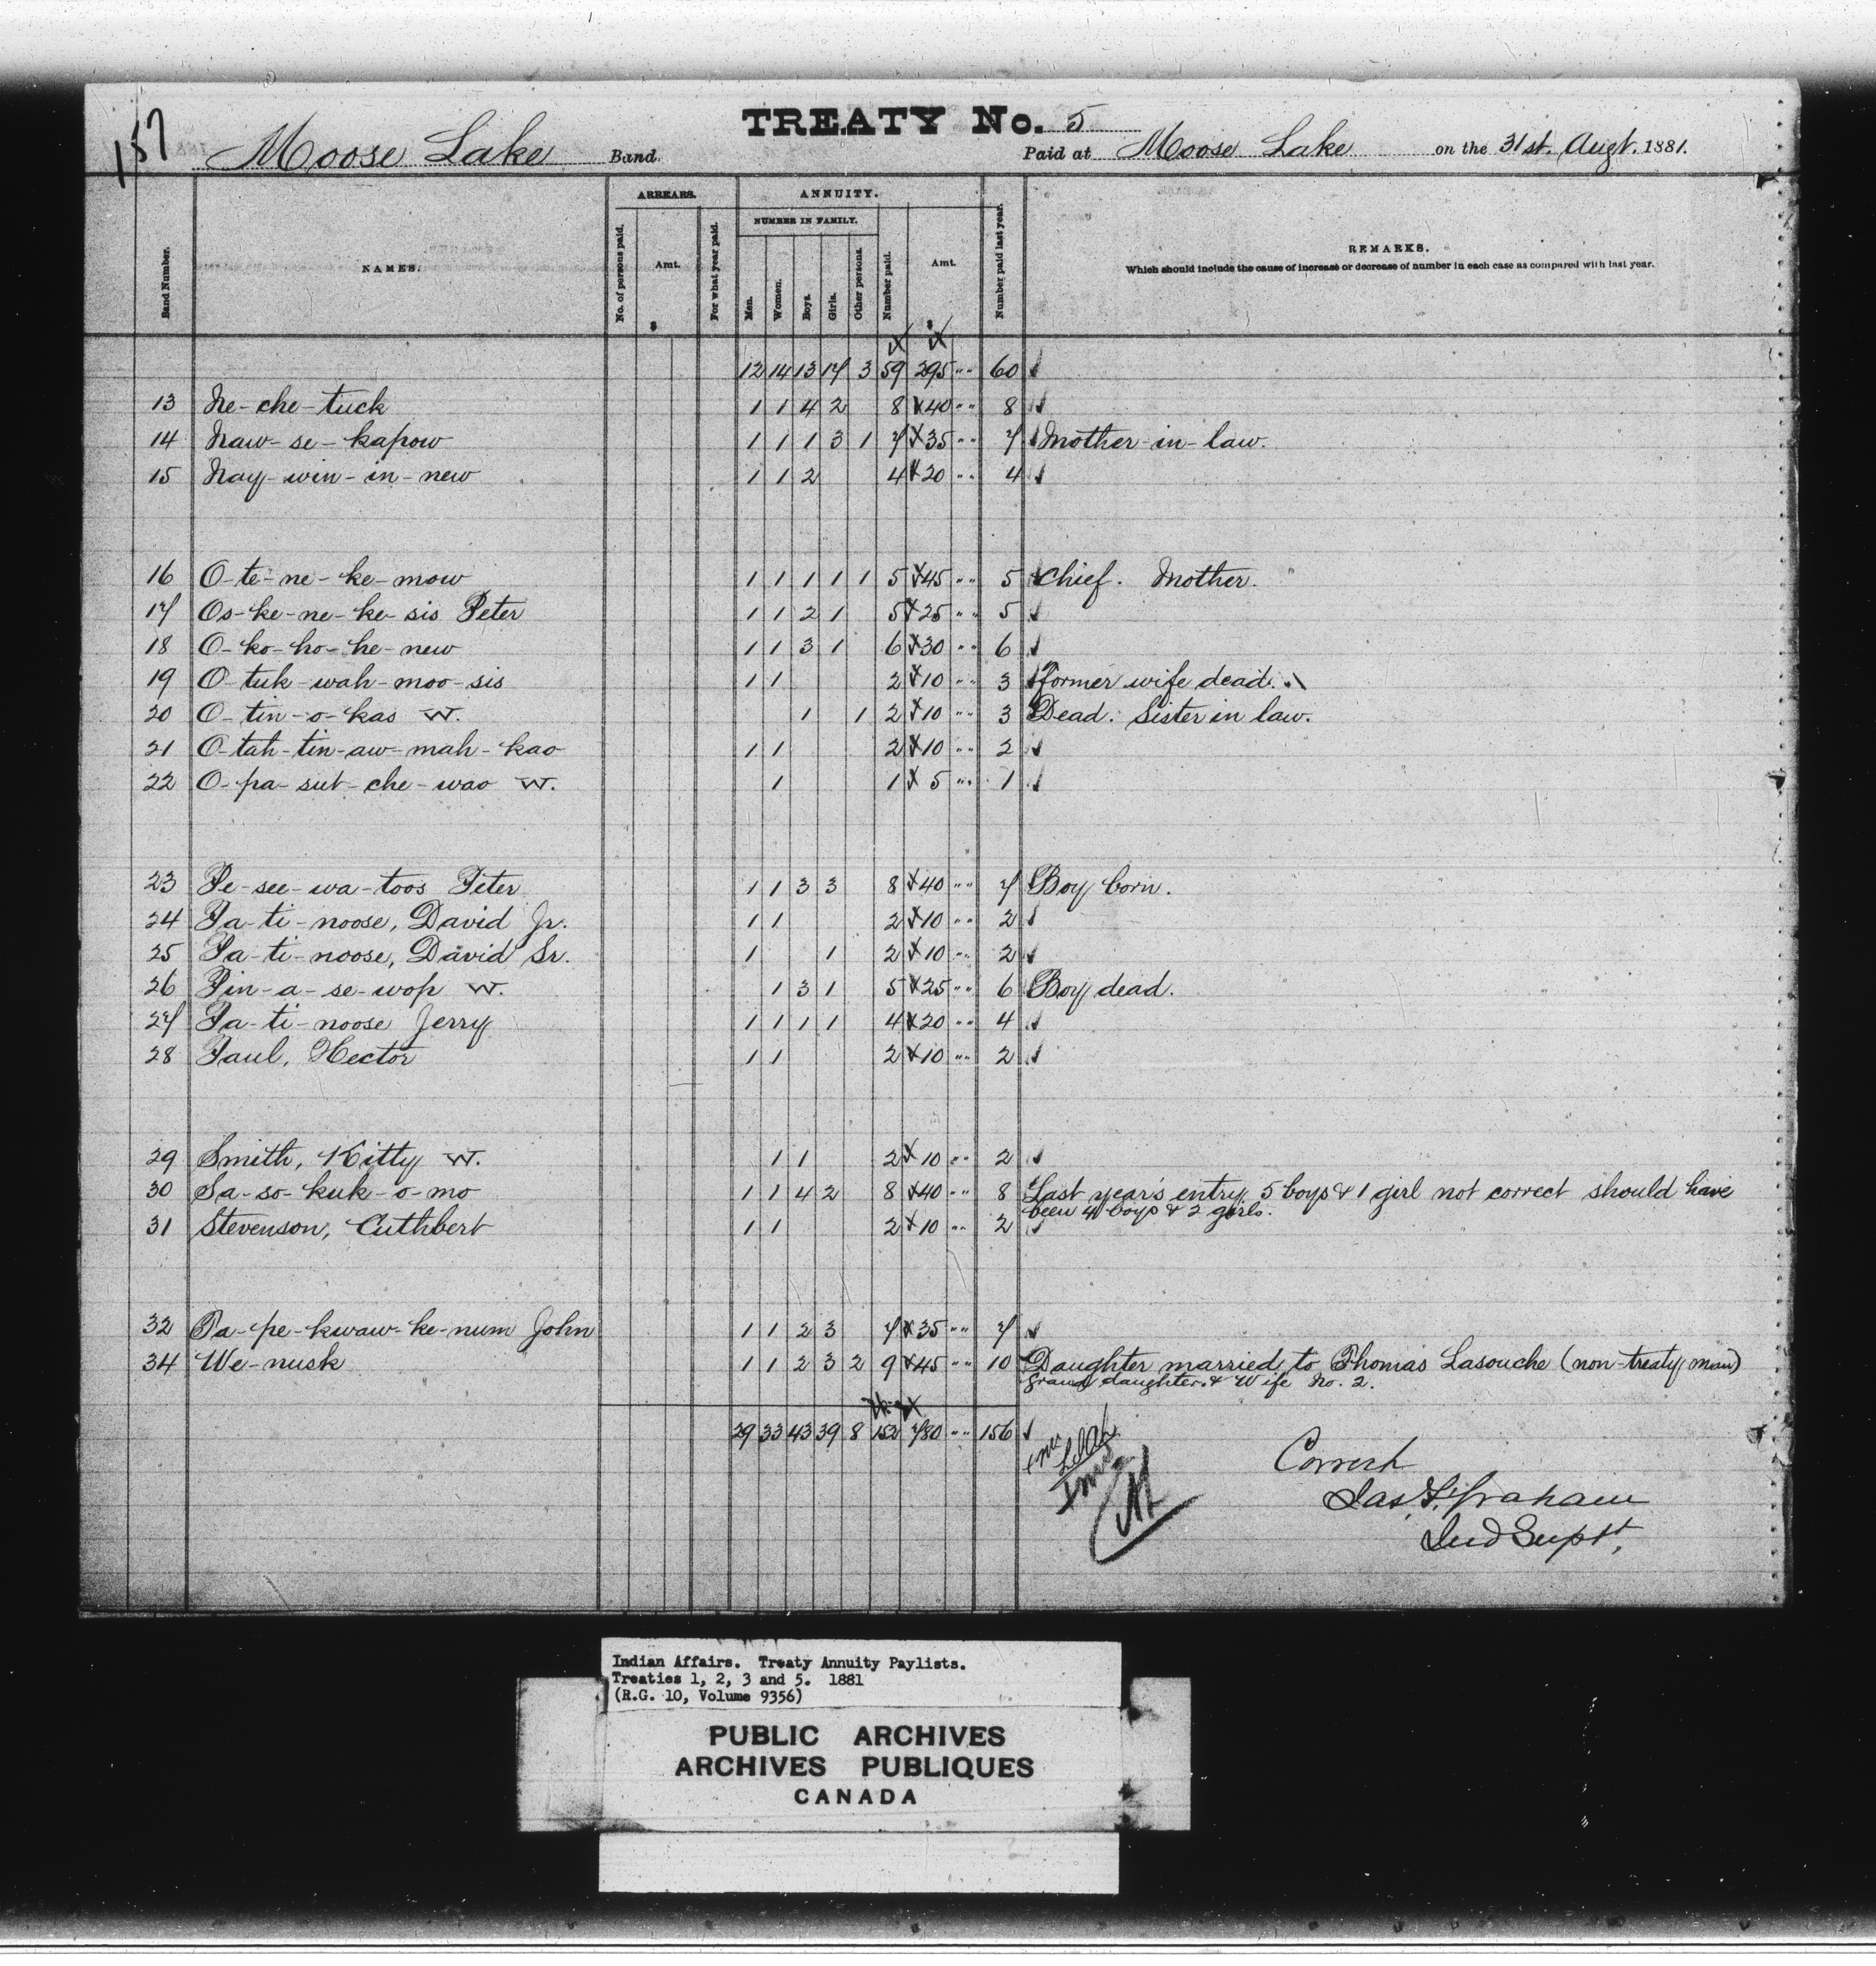 157
TREATY No. 5
Moose Lake Band. Paid at Moose Lake on the 31st. Augt. 1881.
Band Number. NAMES. ARREARS. No. of persons paid. Amt. $ For what year paid. ANNUITY. NUMBER IN FAMILY. Men. Women. Boys. Girls. Other persons. Number paid. Amt. $ Number paid last year. REMARKS.
Which should include the cause of increase or decrease of number in each case as compared with last year.
12 14 13 17 3 59 295 " 60
13 Ne-che-tuck 1 1 4 2 8 40 " 8
14 Naw-se-kapow 1 1 1 3 1 7 35 " 7 Mother-in-law.
15 Nay-win-in-new 1 1 2 4 20 " 4
16 O-te-ne-ke-mow 1 1 1 1 1 5 45 " 5 Chief. Mother.
17 Os-ke-ne-ke-sis Peter 1 1 2 1 5 25 " 5
18 O-ko-ho-he-new 1 1 3 1 6 30 " 6
19 O-tuk-wah-moo-sis 1 1 2 10 " 3 Former wife dead.
20 O-tin-o-kas W. 1 1 2 10 " 3 Dead. Sister in law.
21 O-tah-tin-aw-mah-kao 1 1 2 10 " 2
22 O-pa-sut-che-wao W. 1 1 5 " 1
23 Pe-see-wa-toos Peter 1 1 3 3 8 40 " 7 Boy born.
24 Pa-ti-noose, David Jr. 1 1 2 10 " 2
25 Pa-ti-noose, David Sr. 1 1 2 10 " 2
26 Pin-a-se-wop W. 1 3 1 5 25 " 6 Boy dead.
27 Pa-ti-noose Jerry 1 1 1 1 4 20 " 4
28 Paul, Hector 1 1 2 10 " 2
29 Smith, Kitty W. 1 1 2 10 " 2
30 Sa-so-kuk-o-mo 1 1 4 2 8 40 " 8 Last year's entry 5 boys & 1 girl not correct should have
been 4 boys & 2 girls.
31 Stevenson, Cuthbert 1 1 2 10 " 2
32 Ta-pe-kwaw-ke-num John 1 1 2 3 7 35 " 7
34 We-nusk 1 1 2 3 2 9 45 " 10 Daughter married to Thomas Lasouche (non-treaty man)
Grand daughter & Wife No. 2.
29 33 43 39 8 152 780 " 156
Correct
Jas. F. Graham
Ind Supt.
Indian Affairs. Treaty Annuity Paylists.
Treaties 1, 2, 3 and 5. 1881
(R.G. 10, Volume 9356)
PUBLIC ARCHIVES
ARCHIVES PUBLIQUES
CANADA